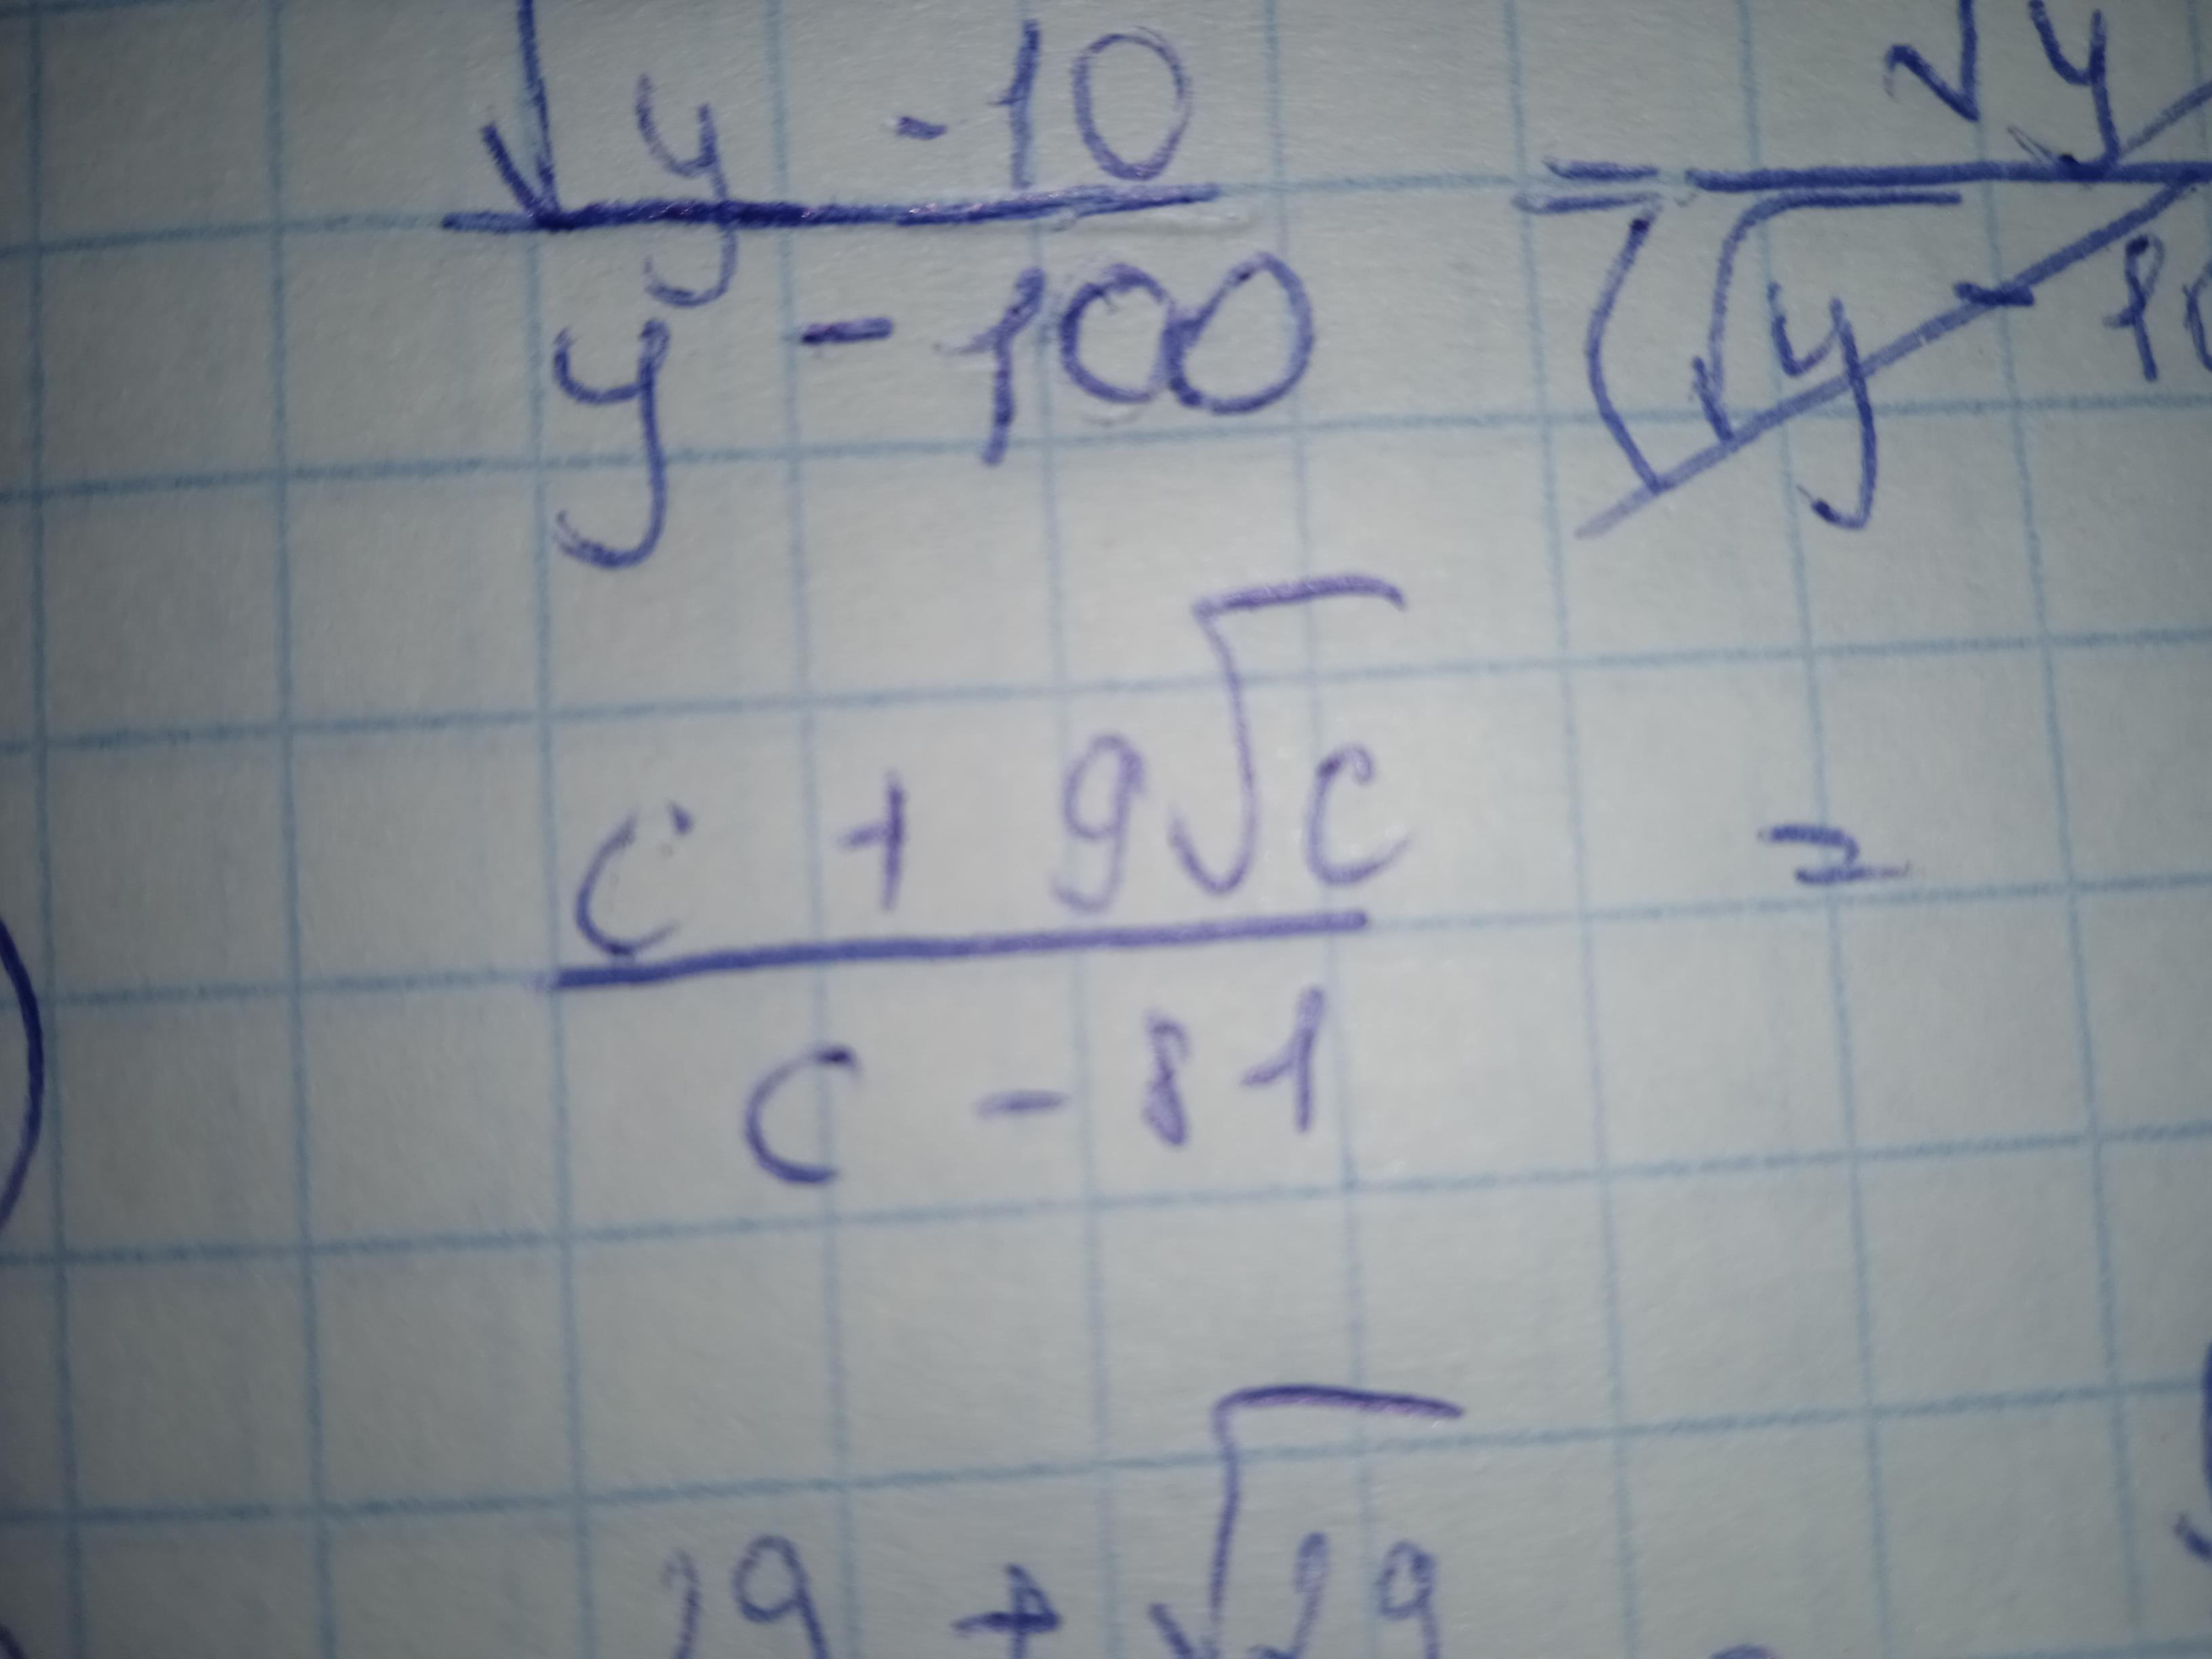 √y - 10 = √y
y - 100 (√y - 10
c + 9√c =
c - 81
29 + √29